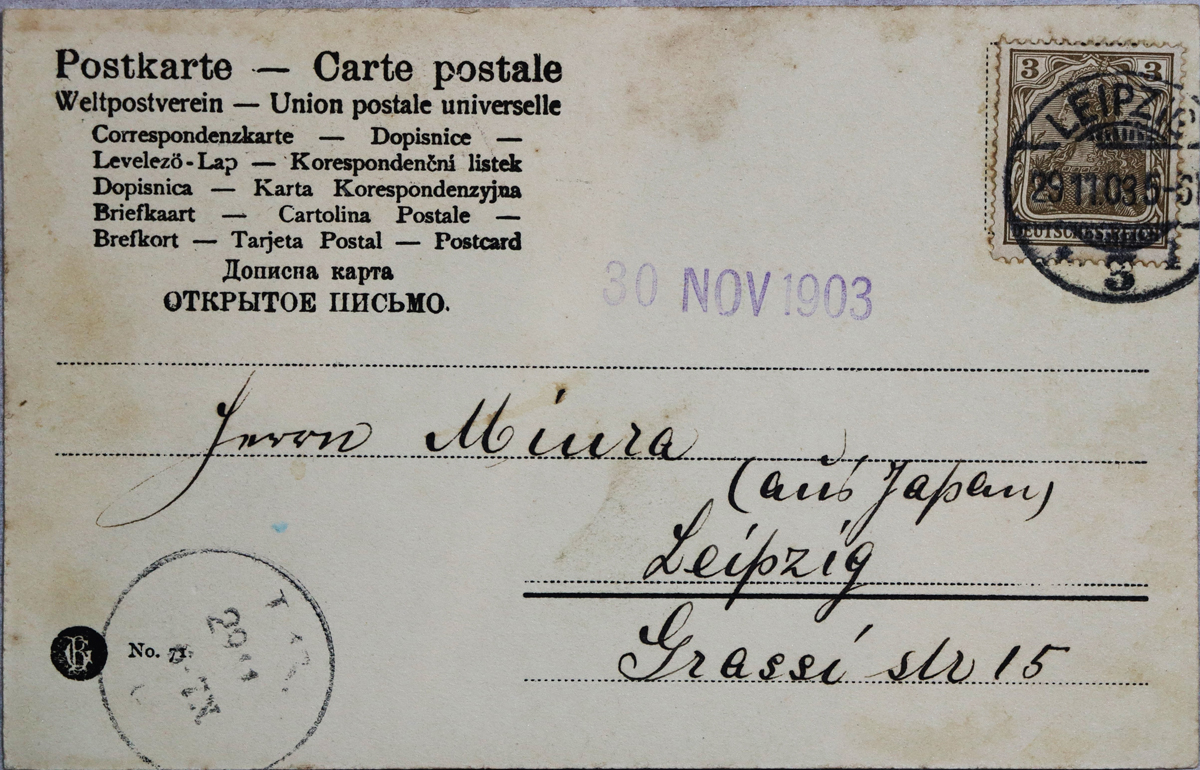 Postkarte — Carte postale
Weltpostverein — Union postale universelle
Correspondenzkarte — Dopisnice —
Levelező-Lap — Korespondenční listek
Dopisnica — Karta Korespondenzyjna
Briefkaart — Cartolina Postale —
Brefkort — Tarjeta Postal — Postcard
Дописна карта
ОТКРЫТОЕ ПИСЬМО.
3 3
DEUTSCHES REICH
LEIPZIG
29 11.03 5-6
3
30 NOV 1903
Herrn Miura
(aus Japan)
Leipzig
Grassi str 15
No. 71.
29